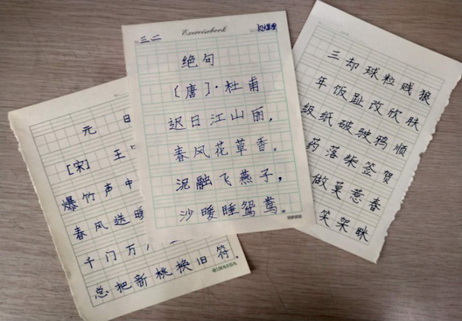 元日
[宋] 王
爆竹声中
春风送暖
千门万
总把新桃换旧符.
三二
Exercisebook
绝句
[唐]·杜甫
迟日江山丽,
春风花草香.
泥融飞燕子,
沙暖睡鸳鸯.
三却球粒贱狠
年饭趾改欣肤
级纸破驶鸦顺
药落柴签贺
做莫惹香
笑架眯